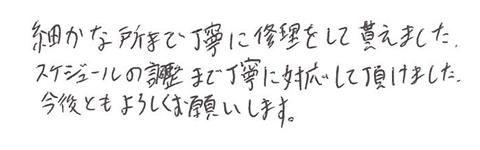 細かな所まで丁寧に修理をして貰えました.
スケジュールの調整まで丁寧に対応して頂けました.
今後ともよろしくお願いします。